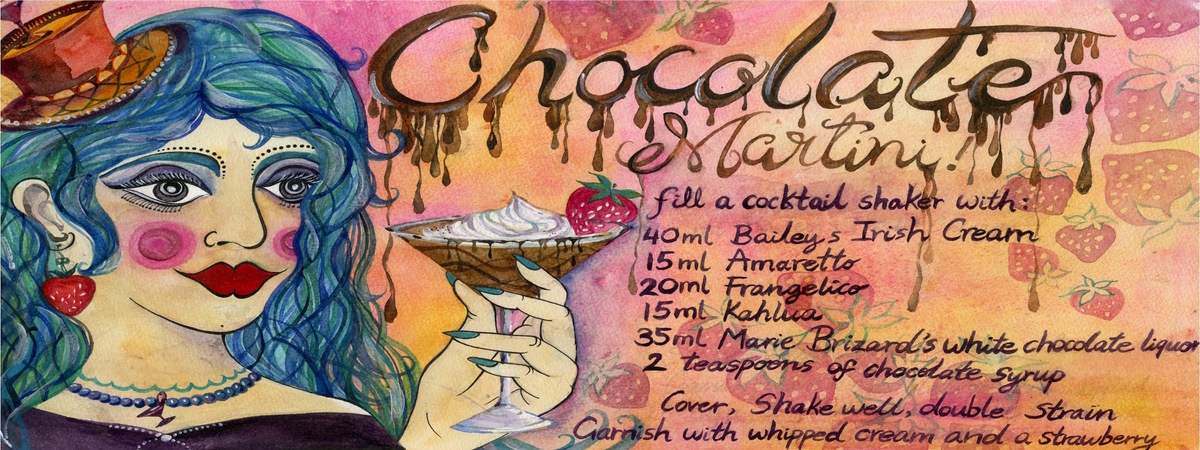 Chocolate
Martini!
fill a cocktail shaker with:
40ml Bailey,s Irish Cream
15ml Amaretto
20ml Frangelico
15ml Kahlua
35ml Marie Brizard's white chocolate liquor
2 teaspoons of chocolate syrup
Cover, Shake well, double strain
Garnish with whipped cream and a strawberry